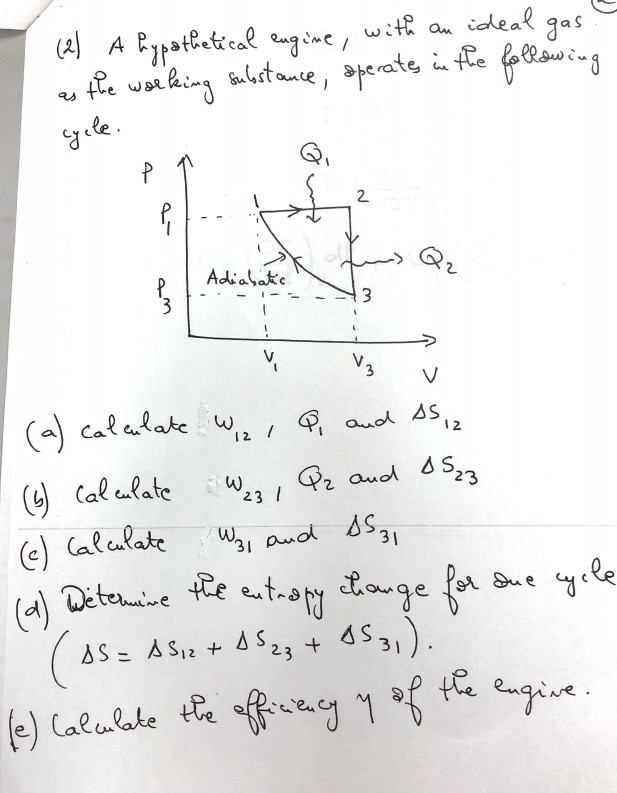 (2) A hypothetical engine, with an ideal gas
as the working substance, operates in the following
cycle.
P
Q₁
1
2
P₁
Q₂
Adiabatic
P₃
3
V₁
V₃
V
(a) Calculate W₁₂, Q₁ and ΔS₁₂
(b) Calculate W₂₃, Q₂ and ΔS₂₃
(c) Calculate W₃₁ and ΔS₃₁
(d) Determine the entropy change for one cycle
(ΔS = ΔS₁₂ + ΔS₂₃ + ΔS₃₁).
(e) Calculate the efficiency η of the engine.